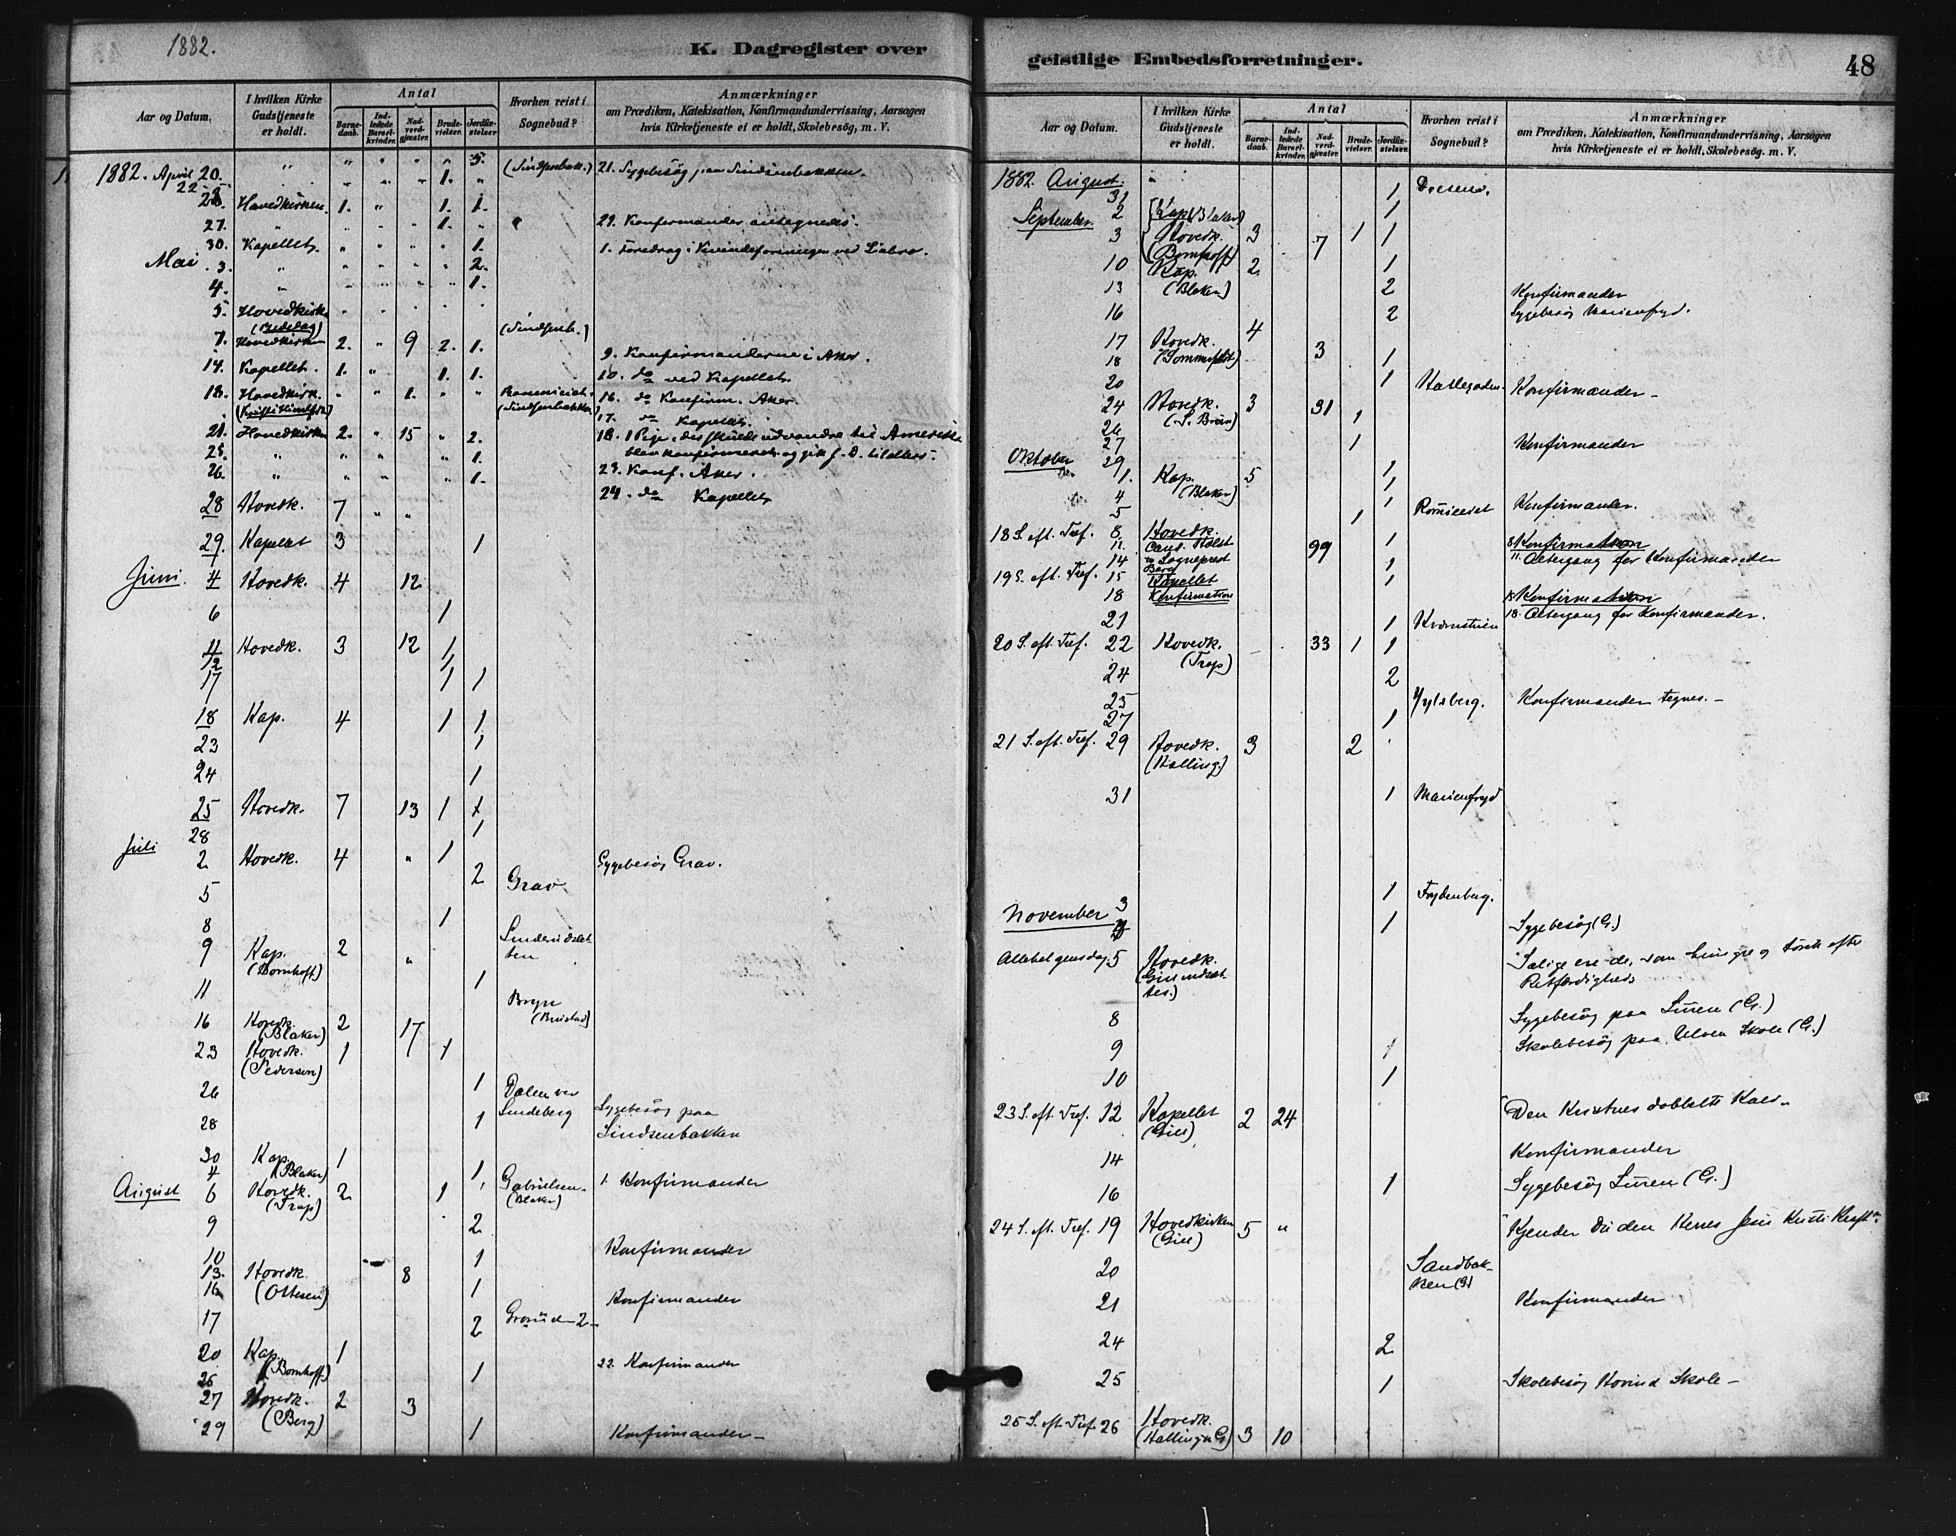 1882.
K. Dagregister over
Aar og Datum.
I hvilken Kirke Gudstjeneste er holdt.
Antal
Barnedaab.
Indledede Barselkvinder.
Nadverdgjæster.
Brudevielser.
Jordfæstelser
Hvorhen reist i Sognebud?
Anmærkninger
om Prædiken, Katekisation, Konfirmandundervisning, Aarsagen
hvis Kirketjeneste ei er holdt, Skolebesög, m. V.
1882. April 20. " " " " " 5. 21. Sygebesög paa Sindsenbakken.
22 " " " " 1. "
23. Hovedkirken. 1. " 1. 1.
27. " " " " 1. " 29. Konfirmander antegnedes.
30. Kapellet. " " " " 1. 1. Foredrag i Kvindeforeningen ved Liabro.
Mai 3. " " " " " 2.
4. " " " " " 1.
5. Hovedkirk
(Bededag)
7. Hovedkirken 2. " 9 2. 1. (Sindsenb.) 9. Konfirmanderne i Aker.
14. Kapellet. 1. " 1. 1. 10. do ved Kapellet.
18. Hovedkirk. " " 1. " " 16. do Konfirm. Aker.
(Kristi Himlfds) (Sindsenbakken) 17. do Kapellet.
21. Hovedkirken 2. " 15 " 2. 18. 1 Pige, der skulde udvandre til Amerika
25. " " " " 1. blev konfirmeret og gik f. D. til alters.
26. " " " " 1. 23. Konf. Aker.
24. do Kapellet
28 Hovedk. 7 " "
29. Kapellet 3 1
Juni. 4 Hovedk. 4 12
6 1
11 Hovedk. 3 12 1
12 1
17 1 1
18 Kap. 4 1 1
23 1
24 1
25 Hovedk. 7 13 1 1
28 1
Juli 2 Hovedk. 4 " 1 Sygebesög Grav.
5 2 Grav
8 1
9 Kap. 2 "
(Bomhoff)
11 1 Bryn
16 Hovedk. 2 17
(Blaker)
23 Hovedk. 1 1
(Pedersen)
26 1 Dalen ved
Lindeberg
28 1 Sygebesög paa
Sindsenbakken
30 Kap. 1
4 (Blaker) 1
August 6 Hovedk. 2 1 Gabrielsen 1. Konfirmander
(Trap) (Blaker)
9 2
10 1 Konfirmander
13. Hovedk. 8
16 (Ottesen) 1 Konfirmander
17 2 Grorud 2
20 Kap. 1
(Bomhoff) 22. Konfirmander
25 1
27 Hovedk. 2 3
(Berg)
29 1 Konfirmander
geistlige Embedsforretninger.
48
Aar og Datum.
I hvilken Kirke Gudstjeneste er holdt.
Antal
Barnedaab.
Indledede Barselkvinder.
Nadverdgjæster.
Brudevielser.
Jordfæstelser.
Hvorhen reist i Sognebud?
Anmærkninger
om Prædiken, Katekisation, Konfirmandundervisning, Aarsagen
hvis Kirketjeneste ei er holdt, Skolebesög. m. V.
1882 August. 31 1
September 2 Kap. (Blaker) 1
3 Hovedk. 3 7 1 1
(Bomhoff)
10 Kap. 2 1
(Blaker)
13 2 Konfirmander
16 2 Sygebesög Marienfryd.
17 Hovedk. 4 3
(Sommerfeldt)
18 1
20 1 Konfirmander
24 Hovedk. 3 31 1
(S. Brun)
26
27 1 Konfirmander
29 1
Oktober 1. Kap. 5 1
(Blaker)
4 1 Konfirmander.
5 1
18 S. eft. Tref. 8 Hovedk. 1 8 Konfirmation
11. Cand. Holst 99 11 Altergang for Konfirmander
14 Sogneprest 1
Berg
19 S. eft. Tref. 15 Kapellet 1 15 Konfirmation
18 Konfirmation 18. Altergang for Konfirmander.
21 1
20 S. eft. Tref. 22 Hovedk. 33 1 1
(Trap)
24 2
25 Konfirmander tegnes.
27 1
21 S. eft. Tref. 29 Hovedk. 3 2
(Halling.)
31 1 Marienfryd
November 3 1 Frydenberg.
1 Sygebesög (G.)
Allehelgensdag 5 Hovedk. "Salige ere de, som hungre og törste efter
Retfærdighed"
8 Sygebesög paa Luren (G.)
9 1 Skolebesög paa Ulven Skole (G.)
10 1
23 S. eft. Tref. 12 Kapellet 2 24 "Den Kristnes dobbelte Kald"
14 Konfirmander
16 1 Sygebesög Luren (G.)
24 S. eft. Tref. 19 Hovedkirken 5 " "Kjender Du den Herres Jesu Kristi Kraft"
20 Sandbakken (G)
21 Konfirmander
24 2
25 1 Skolebesög Hovind Skole
25 S. eft. Tref. 26 Hovedk. 3 10
(Halling G)